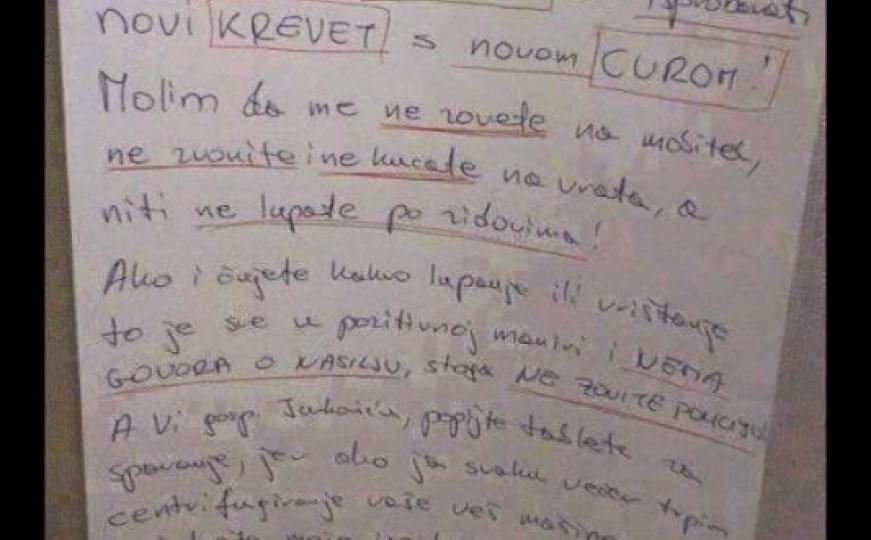 isprobavati
novi KREVET s novom CUROM!
Molim da me ne zovete na mobitel,
ne zvonite i ne kucate na vrata, a
niti ne lupate po zidovima!
Ako i čujete kakvo lupanje ili vrištanje
to je sve u pozitivnoj maniri i NEMA
GOVORA O NASILJU, stoga NE ZOVITE POLICIJU
A Vi gosp. popijte tablete za
spavanje, jer ako ja svaku večer trpim
centrifugiranje vaše veš mašine